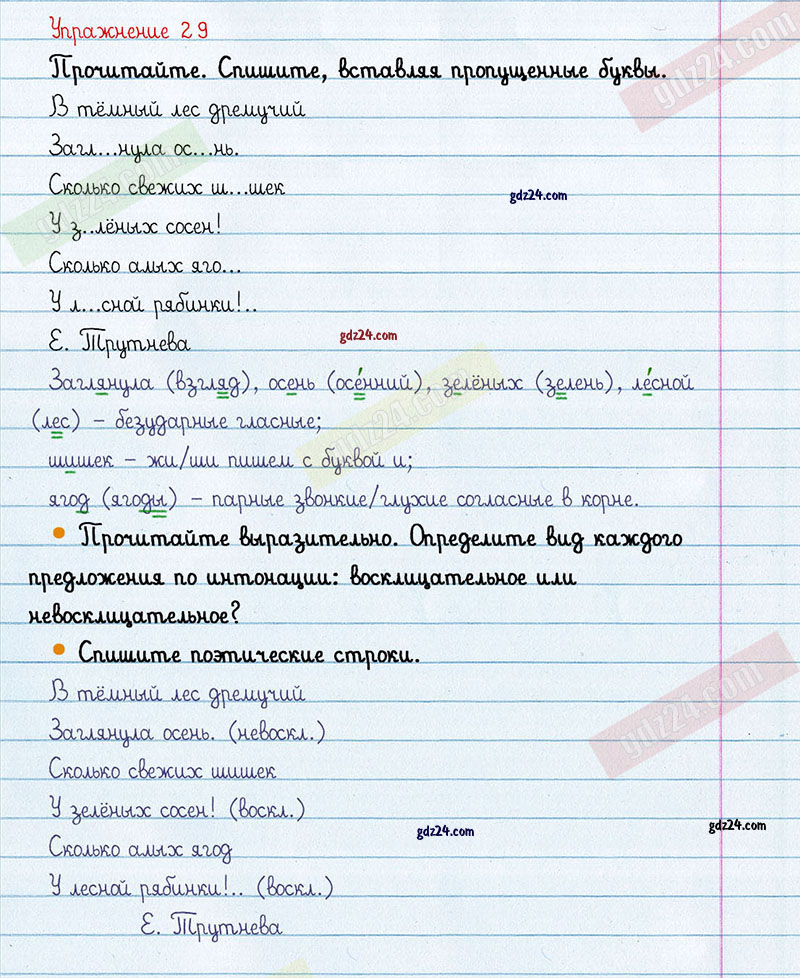 Упражнение 29
Прочитайте. Спишите, вставляя пропущенные буквы.
В тёмный лес дремучий
Загл...нула ос...нь.
Сколько свежих ш...шек
gdz24.com
У з..лёных сосен!
Сколько алых яго...
У л...сной рябинки!..
Е. Трутнева
gdz24.com
Заглянула (взгляд), осень (осе́нний), зелёных (зелень), ле́сной
(лес) – безударные гласные;
шишек – жи/ши пишем с буквой и;
ягод (ягоды) – парные звонкие/глухие согласные в корне.
• Прочитайте выразительно. Определите вид каждого
предложения по интонации: восклицательное или
невосклицательное?
• Спишите поэтические строки.
В тёмный лес дремучий
Заглянула осень. (невоскл.)
Сколько свежих шишек
У зелёных сосен! (воскл.)
gdz24.com
gdz24.com
Сколько алых ягод
У лесной рябинки!.. (воскл.)
Е. Трутнева
gdz24.com
gdz24.com
gdz24.com
gdz24.com